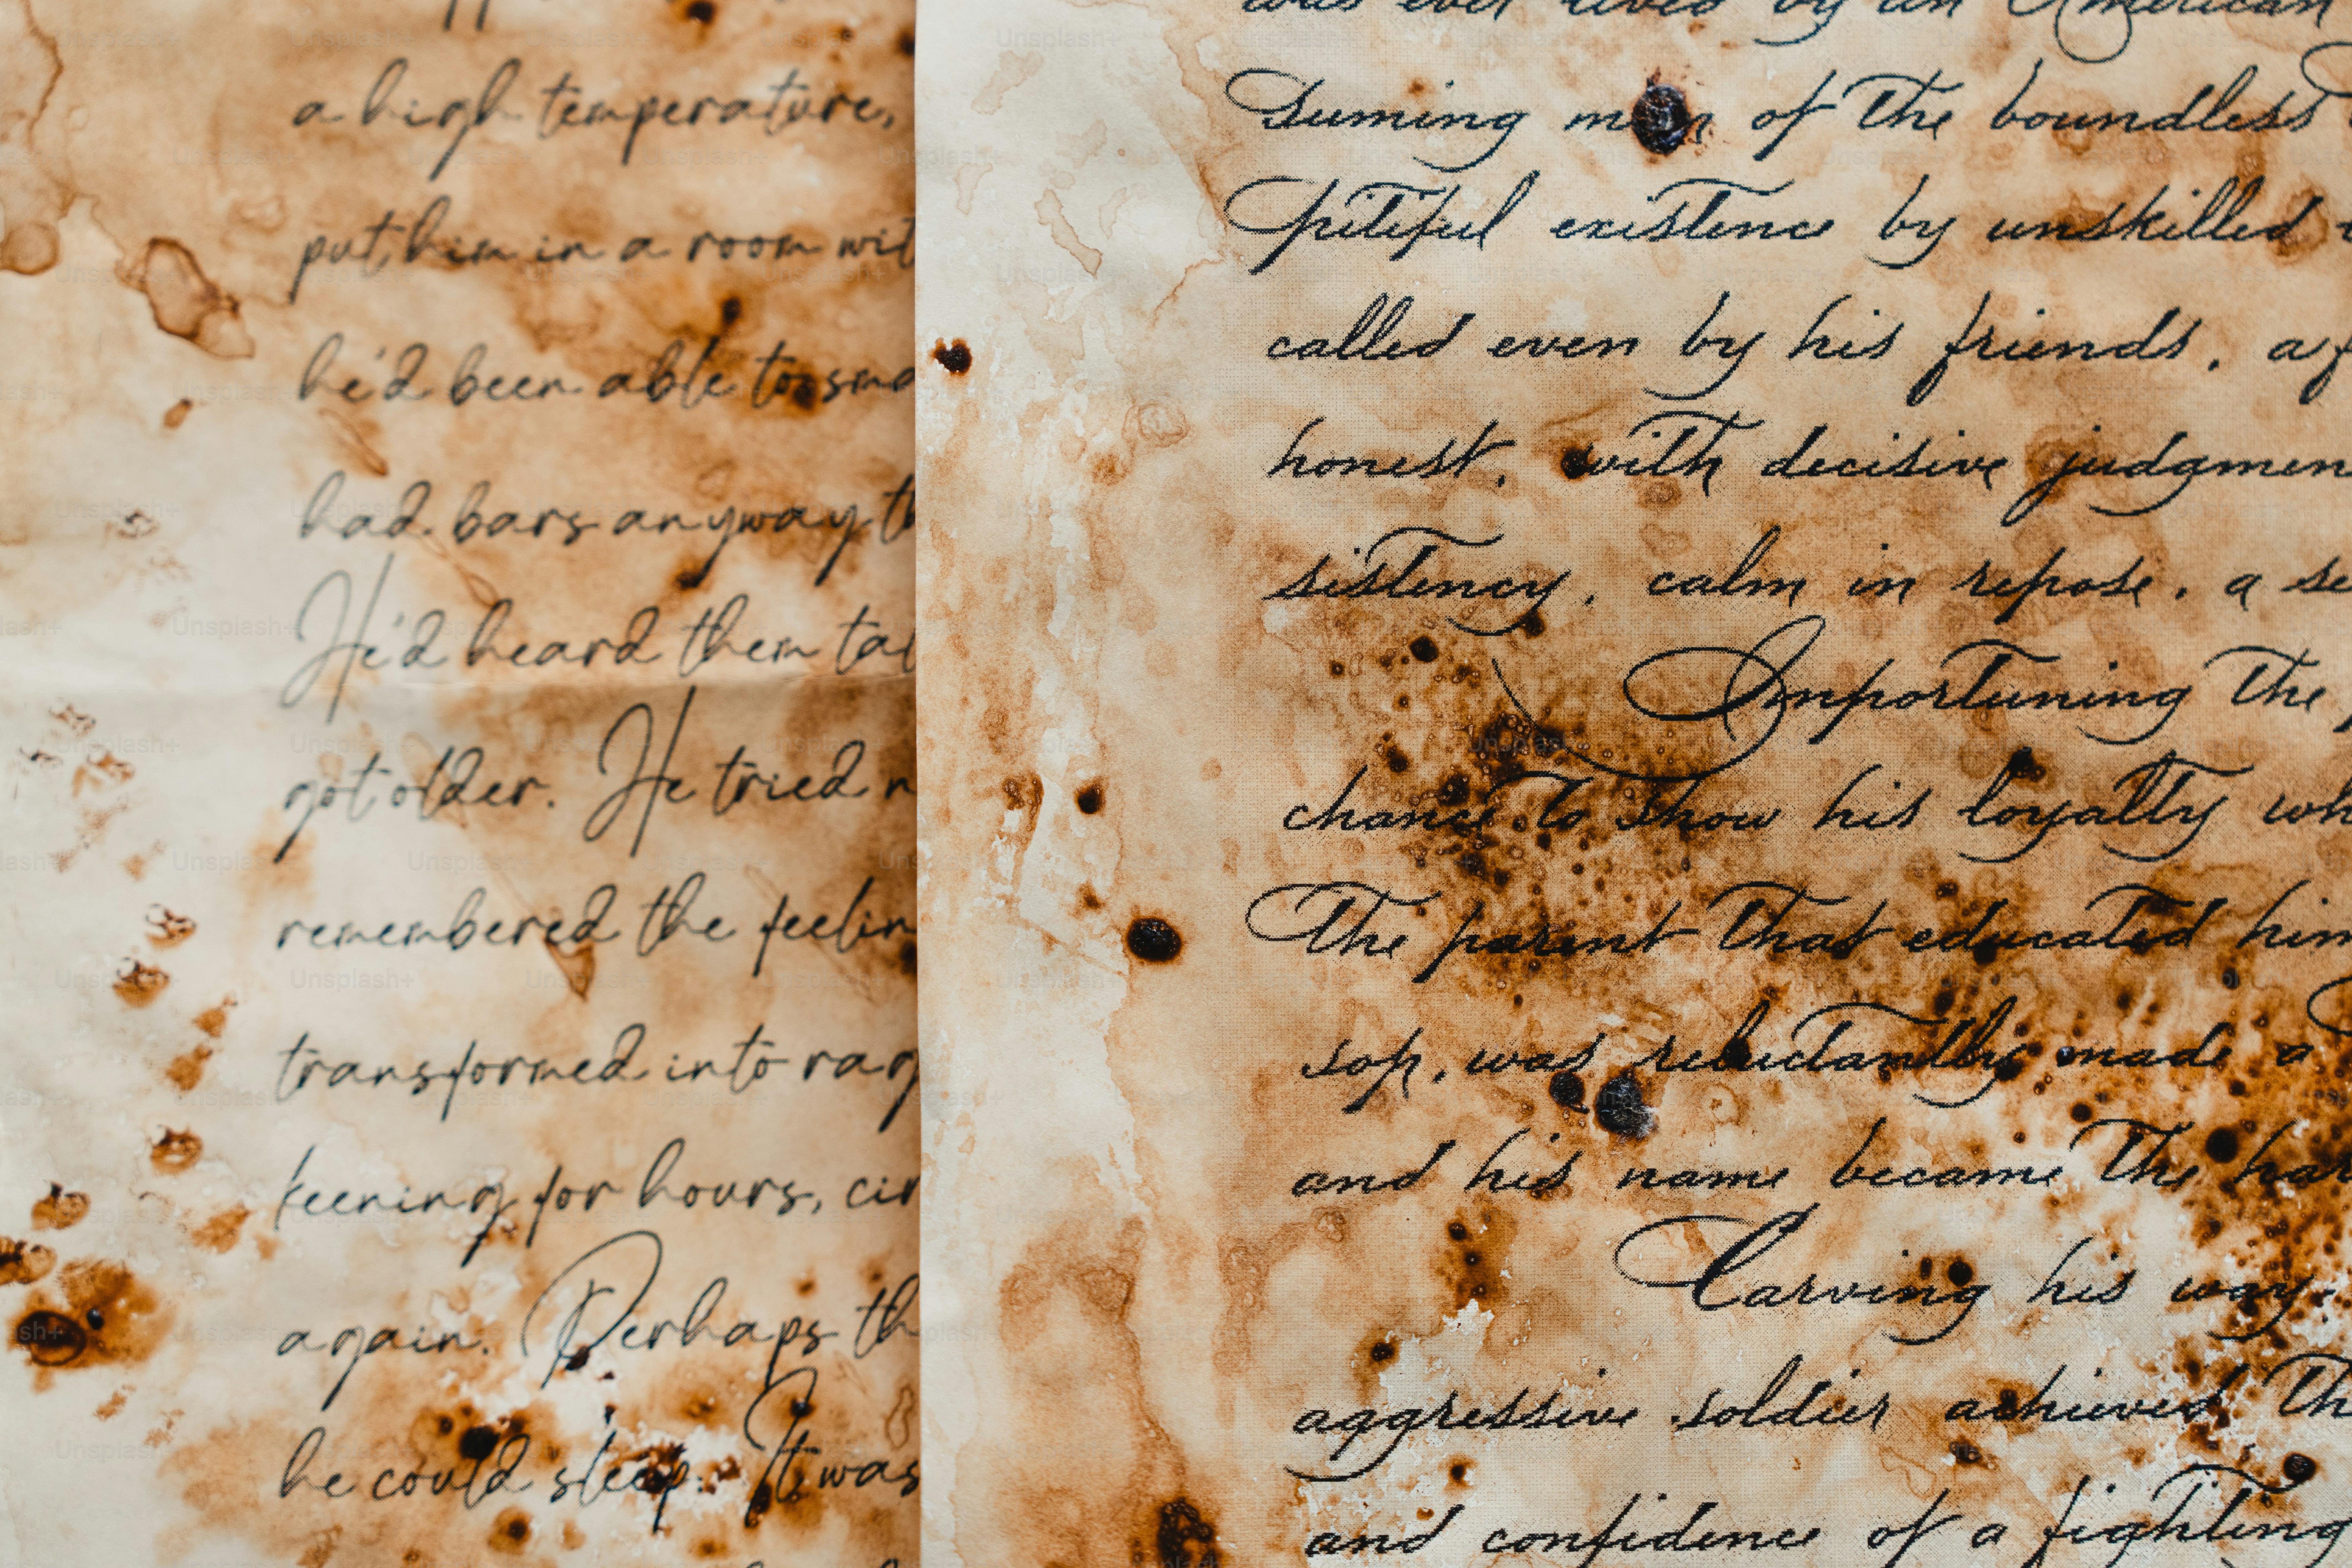 a high temperature,
put him in a room
he'd been able to
had bars anyway
He'd heard them
got older. He tried
remembered the
transformed into
keening for hours,
again. Perhaps
he could sleep. It was
was ever lived by an American
suming man of the boundless
pitiful existence by unskilled
called even by his friends, a
honest, with decisive
sistency, calm in repose, a
Importuning the
chance to show his loyalty
The parent that educated him
sop, was reluctantly made a
and his name became the
Carving his way
aggressive soldier achieved
and confidence of a fighting